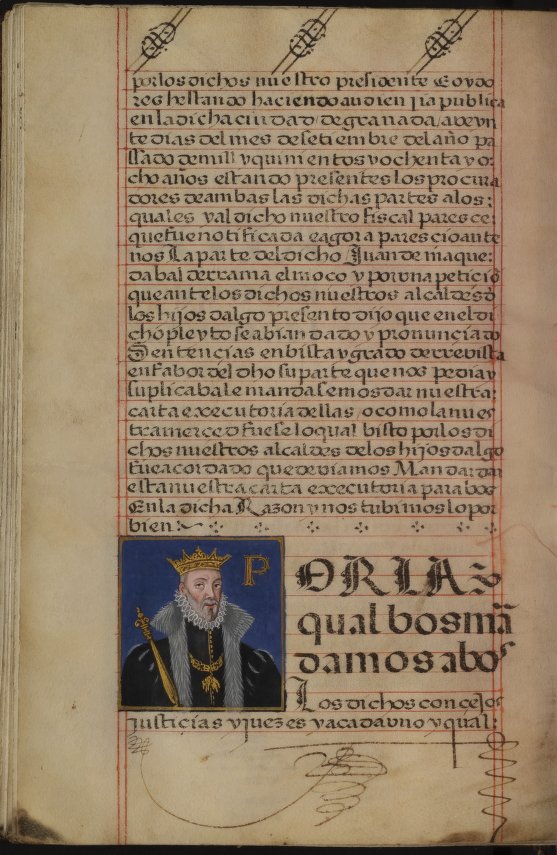 por los dichos nuestro presidente E oydo
res hestando haciendo audiençia publica
en la dicha ciudad de granada a veyn
te dias del mes de setiembre del año pa
ssado de mill y quinientos y ochenta y o
cho años estando presentes los procura
dores de ambas las dichas partes a los
quales y al dicho nuestro fiscal pares ce
que fue notificada e agora parescio ante
nos La parte del dicho Juan de maque
da balderrama el moço y por una petiçiõ
que ante los dichos nuestros alcaldes d
los hijos dalgo presento dijo que en el di
cho pleyto se abian dado y pronunciado
Sentencias en bista y grado de rrevista
en fabor del dho su parte que nos pedia y
suplicaba le mandasemos dar nuestra
carta executoria dellas o como la nues
tra merced fuese lo qual bisto por los di
chos nuestros alcaldes de los hijos dalgo
fue acordado que deviamos Mandar dar
esta nuestra carta executoria para bos
En la dicha Razon y nos tubimos lo por
bien
P
OR LA
qual bos mã
damos a bos
Los dichos concejos
justicias y juezes y a cada uno y qual